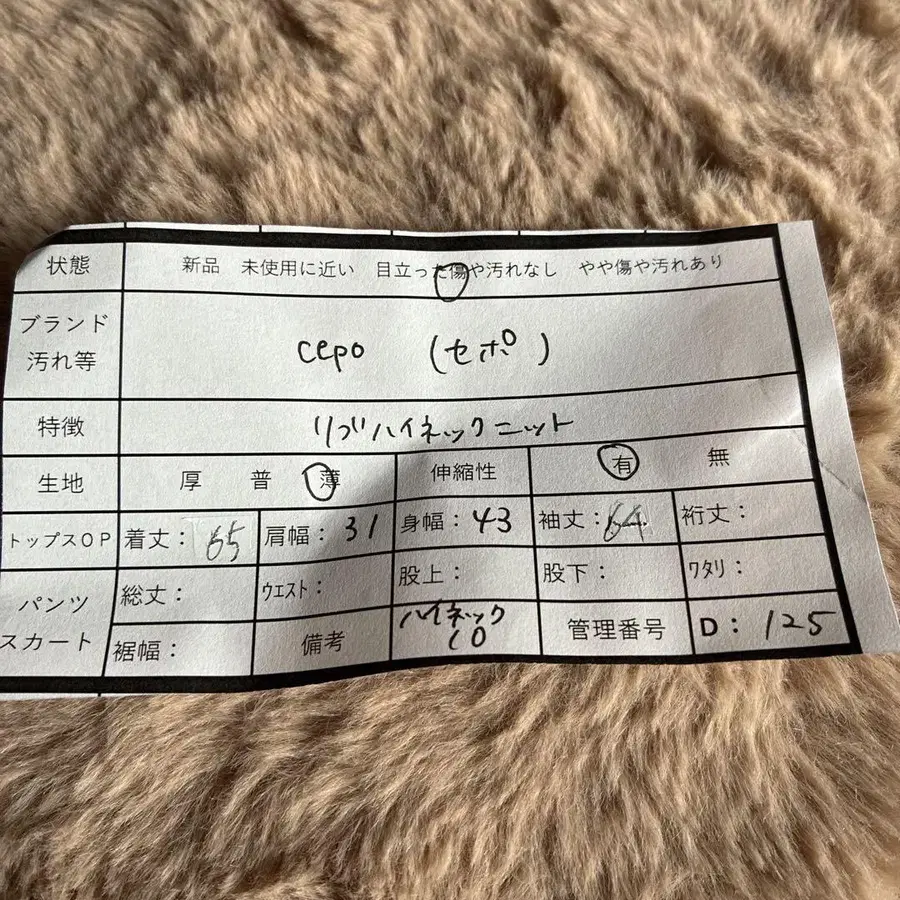 状態 新品 未使用に近い 目立った傷や汚れなし やや傷や汚れあり
ブランド
汚れ等
cepo (セポ)
特徴 リブハイネックニット
生地 厚 普 薄 伸縮性 有 無
トップスOP 着丈: 65 肩幅: 31 身幅: 43 袖丈: 64 裄丈:
パンツ
スカート
総丈: ウエスト: 股上: 股下: ワタリ:
裾幅: 備考 ハイネック
10
管理番号 D: 125